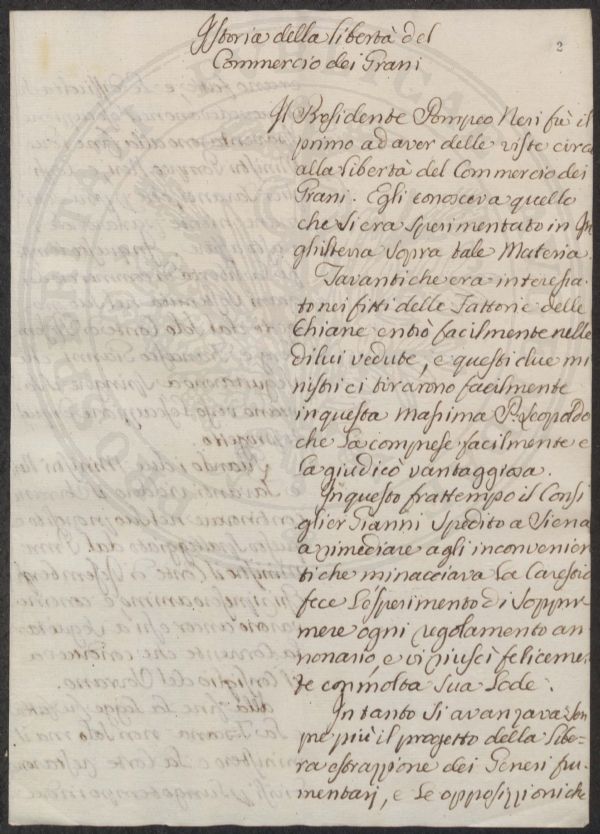 Istoria della libertà del
Commercio dei Grani
2
Il Presidente Pompeo Neri fù il
primo ad aver delle viste circa
alla libertà del Commercio dei
Grani. Egli conosceva quello
che si era sperimentato in In
ghilterra sopra tale Materia.
Tavanti che era interessa-
to nei fitti delle Fattorie delle
Chiane entrò facilmente nelle
di lui vedute, e questi due mi
nistri ci tirarono facilmente
in questa Massima P. Leopoldo
che la comprese facilmente e
la giudicò vantaggiosa.
In questo frattempo il Consi
glier Gianni spedito a Siena
a rimediare agli inconvenien
ti che minacciava la Carestia
fece lo sperimento di soppri
mere ogni regolamento an
nonario, e vi riuscì feliceme
te con molta sua lode.
In tanto si avanzava sem
pre più il progetto della libe-
ra estrazione dei Generi fru
mentarj, e le opposizioni che